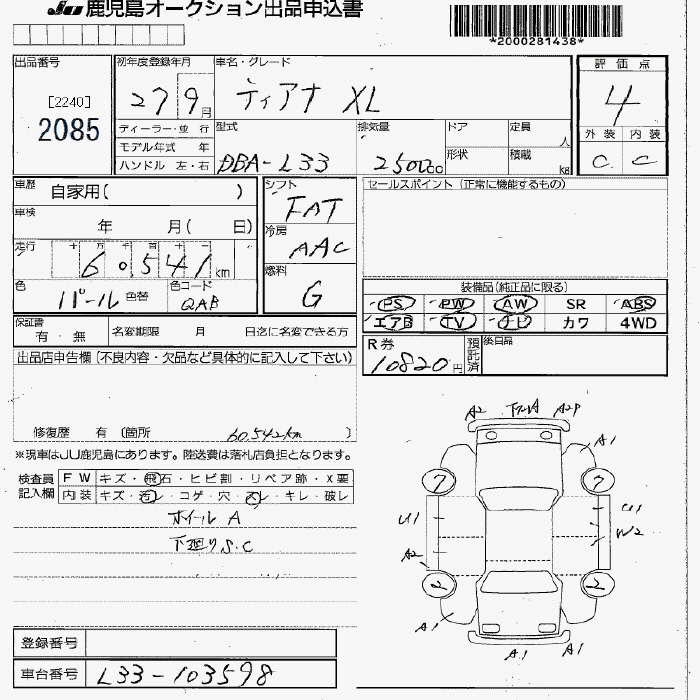 JU 鹿児島オークション出品申込書
*2000281438*
出品番号
[2240]
2085
初年度登録年月
27 9月
車名・グレード
ティアナ XL
評価点
4
外装 内装
C C
ディーラー・並行
モデル年式 年
ハンドル 左・右
型式
DBA-L33
排気量
2500cc
ドア
形状
定員
人
積載
kg
車歴
自家用( )
車検
年 月( 日)
走行
十 万 千 百 十 一
60541km
色
パール 色替
色コード
QAB
シフト
FAT
冷房
AAC
燃料
G
セールスポイント (正常に機能するもの)
装備品(純正品に限る)
PS PW AW SR ABS
エアB TV ナビ カワ 4WD
保証書
有・無
名変期限 月 日迄に名変できる方
R券
10820円
預託済
後日品
出品店申告欄(不良内容・欠品など具体的に記入して下さい)
修復歴 有 〔箇所 60.542km 〕
※現車はJU鹿児島にあります。陸送費は落札店負担となります。
検査員記入欄
FW キズ・飛石・ヒビ割・リペア跡・X要
内装 キズ・汚レ・コゲ・穴・スレ・キレ・破レ
ホイール A
下廻りS.C
A2 A2P
A1
7 7
U1 U1
W2
A2
2 2
A1 A1
A1 A1
登録番号
車台番号 L33-103598